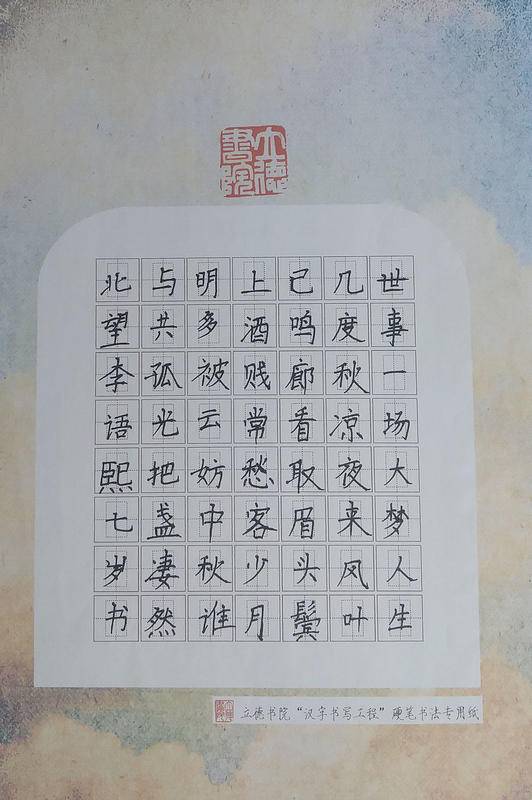 立德書院
世事一场大梦人生
几度秋凉夜来风叶
已鸣廊看取眉头鬓
上酒贱常愁客少月
明多被云妨中秋谁
与共孤光把盏凄然
北望李语熙七岁书
立德书院“汉字书写工程”硬笔书法专用纸